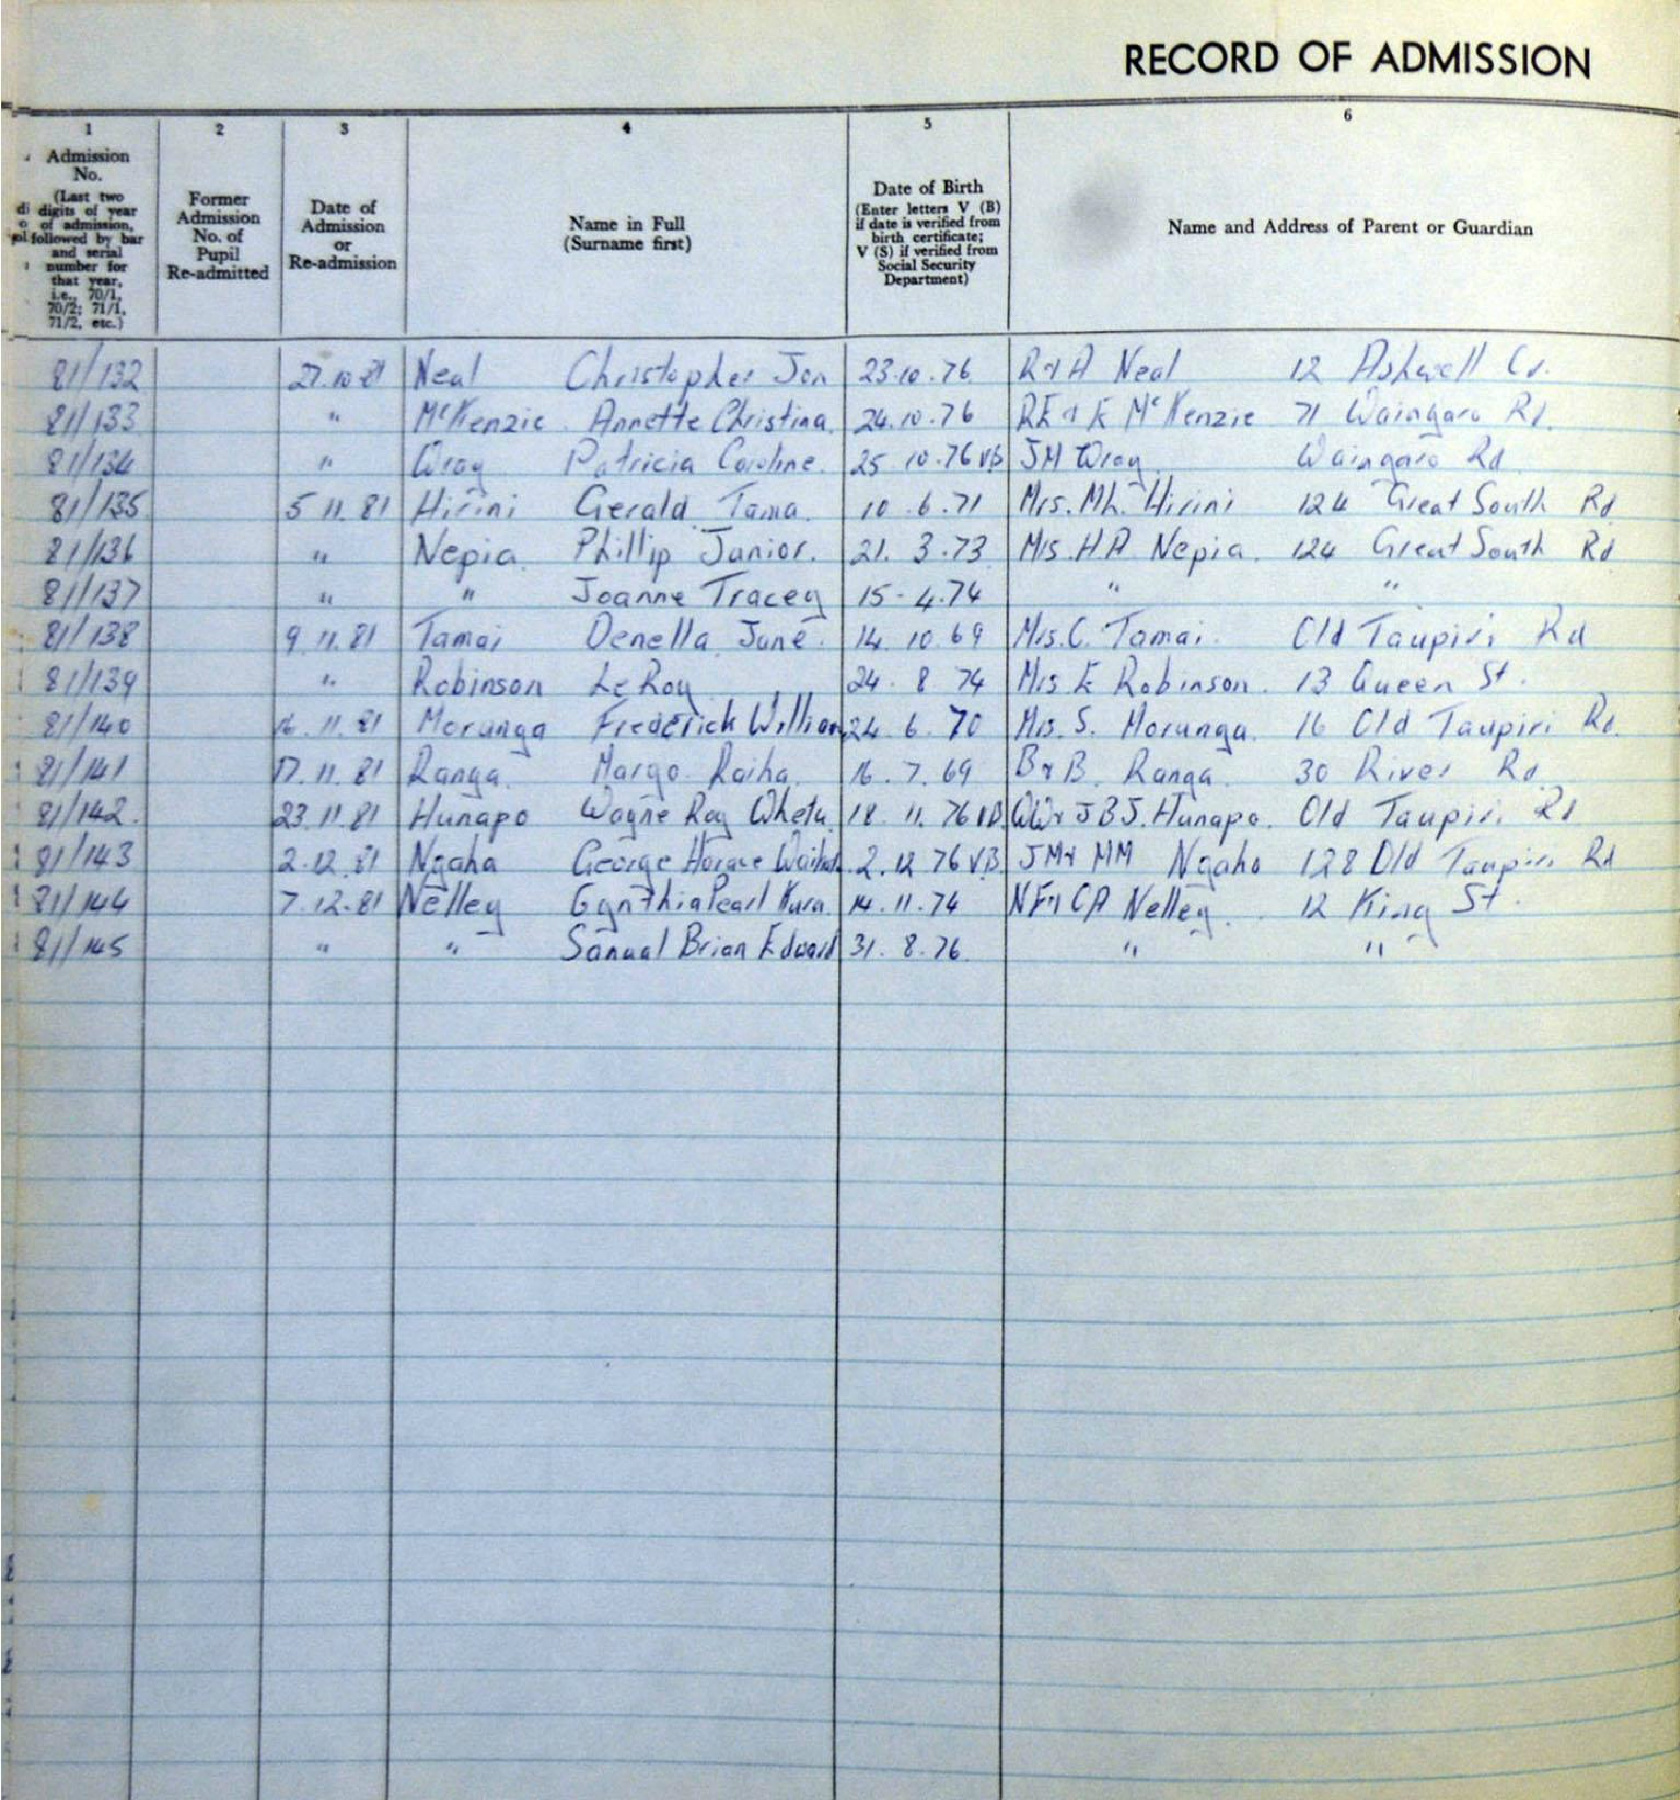 RECORD OF ADMISSION
1 2 3 4 5 6
Admission
No.
(Last two
digits of year
of admission,
followed by bar
and serial
number for
that year,
i.e., 70/1,
70/2; 71/1,
71/2, etc.)
Former
Admission
No. of
Pupil
Re-admitted
Date of
Admission
or
Re-admission
Name in Full
(Surname first)
Date of Birth
(Enter letters V (B)
if date is verified from
birth certificate;
V (S) if verified from
Social Security
Department)
Name and Address of Parent or Guardian
81/132 27.10.81 Neal Christopher Jon 23.10.76 R & A Neal 12 Ashwell Cr.
81/133 " McKenzie Annette Christina 24.10.76 RE & E McKenzie 71 Waingaro Rd.
81/134 " Wray Patricia Caroline. 25.10.76 VB JM Wray Waingaro Rd
81/135 5.11.81 Hirini Gerald Tama. 10.6.71 Mrs. Mh. Hirini 124 Great South Rd
81/136 " Nepia. Phillip Junior. 21.3.73 Mrs. H.A. Nepia. 124 Great South Rd
81/137 " " Joanne Tracey 15-4.74 " "
81/138 9.11.81 Tamai Denella June. 14.10.69 Mrs. C. Tamai. Old Taupiri Rd
81/139 " Robinson LeRoy 24.8.74 Mrs E Robinson. 13 Queen St.
81/140 16.11.81 Morunga Frederick William 24.6.70 Mrs. S. Morunga. 16 Old Taupiri Rd.
81/141 17.11.81 Ranga. Margo Raiha. 16.7.69 B & B. Ranga. 30 River Rd
81/142. 23.11.81 Hunapo Wayne Roy Whetu 18.11.76 VB WW & J B J. Hunapo. Old Taupiri Rd
81/143 2.12.81 Ngaha George Horace 2.12.76 VB JM & MM Ngaha 128 Old Taupiri Rd
81/144 7.12.81 Nelley Gynthia Pearl Kura. 14.11.74 NF & CA Nelley. 12 King St.
81/145 " " Samual Brian Edward 31.8.76. " "